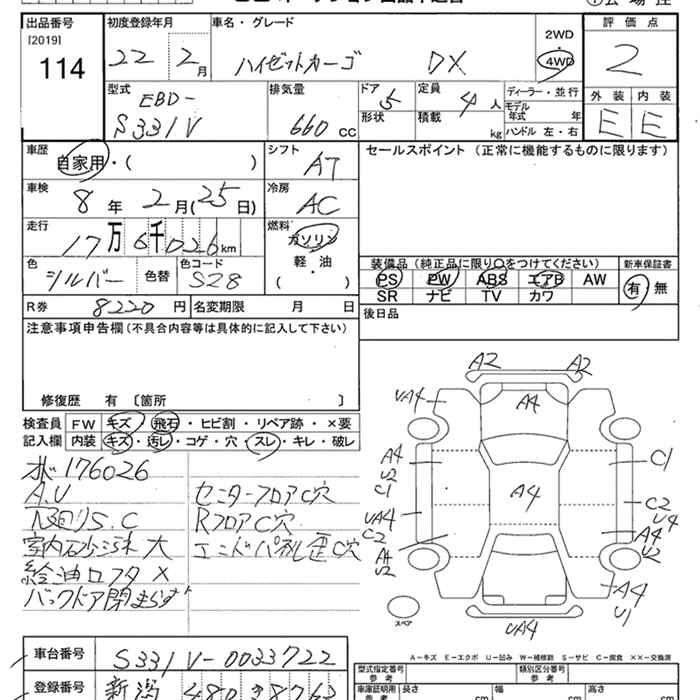 出品番号 初度登録年月 車名・グレード 評価点
[2019] 2WD
114 22 2月 ハイゼットカーゴ DX 4WD 2
型式 排気量 ドア 定員 ディーラー・並行 外装 内装
EBD- 5 4人 モデル年式 年
S331V 660cc 形状 積載 kg ハンドル 左・右 E E
車歴 シフト セールスポイント(正常に機能するものに限ります)
自家用・( ) AT
車検 冷房
8年 2月(25日) AC
走行 燃料
17万6千026km ガソリン
色 色コード 軽・油 装備品(純正品に限り○をつけてください) 新車保証書
シルバー 色替 S28 ( ) PS PW ABS エアB AW 有 無
SR ナビ TV カワ
R券 8220円 名変期限 月 日 後日品
注意事項申告欄(不具合内容等は具体的に記入して下さい)
修復歴 有 〔箇所 〕
検査員 FW キズ・飛石・ヒビ割・リペア跡・×要
記入欄 内装 キズ・汚レ・コゲ・穴・スレ・キレ・破レ
176026
A.U センターフロアC穴
下廻りS.C RフロアC穴
室内砂汚れ大 エンドパネル歪C穴
給油ロフタ×
バックドア閉まらず
A2 A2
UA4 A4
A4 C1
U2
C1
A4
UA4 C2
C2 U4
A4 A4
U2 U2
A4
U1
スペア
UA4
A-キズ E-エクボ U-凹み W-補修跡 S-サビ C-腐食 ××-交換済
車台番号 S331V-0033722
型式指定番号 参考 類別区分番号 参考
登録番号 新潟 480
車庫証明用 参考 長さ cm 幅 cm 高さ cm